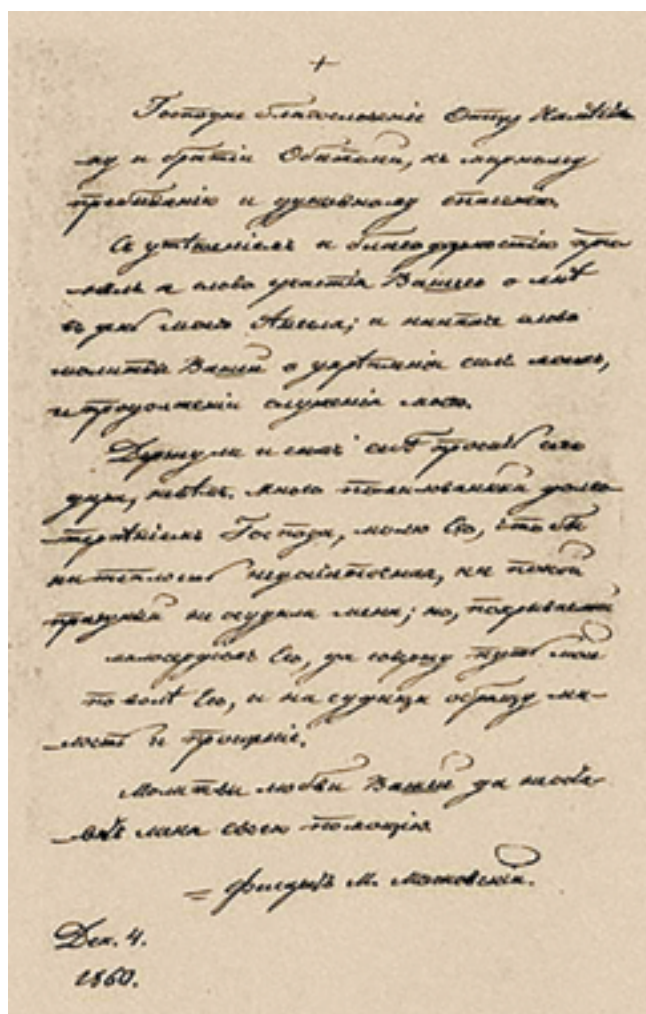 +
Господне благословеніе Отцу
му и братіи Обители, къ мирному
пребыванію и духовному спасенію.
Съ утѣшеніемъ и благодарностію при-
нялъ я слово участія Вашего о мнѣ
въ день моего Ангела; и слово
молитвы Вашей о укрѣпленіи силъ моихъ,
и продолженіи служенія моего.
Дерзну ли и самъ себѣ просить сего
дара, не вѣмъ. Много помилованный долго-
терпѣніемъ Господа, молю Его, чтобы
ни теплость недостаточная, ни покой
праздный не осудили меня; но, покрываемый
милосердіемъ Его, да совершу путь мой
по волѣ Его, и на судищи обрящу ми-
лость и прощеніе.
Молитвы любви Вашей да не оста-
вятъ меня своею помощію.
= Филаретъ М. Московскій.
Дек. 4.
1860.